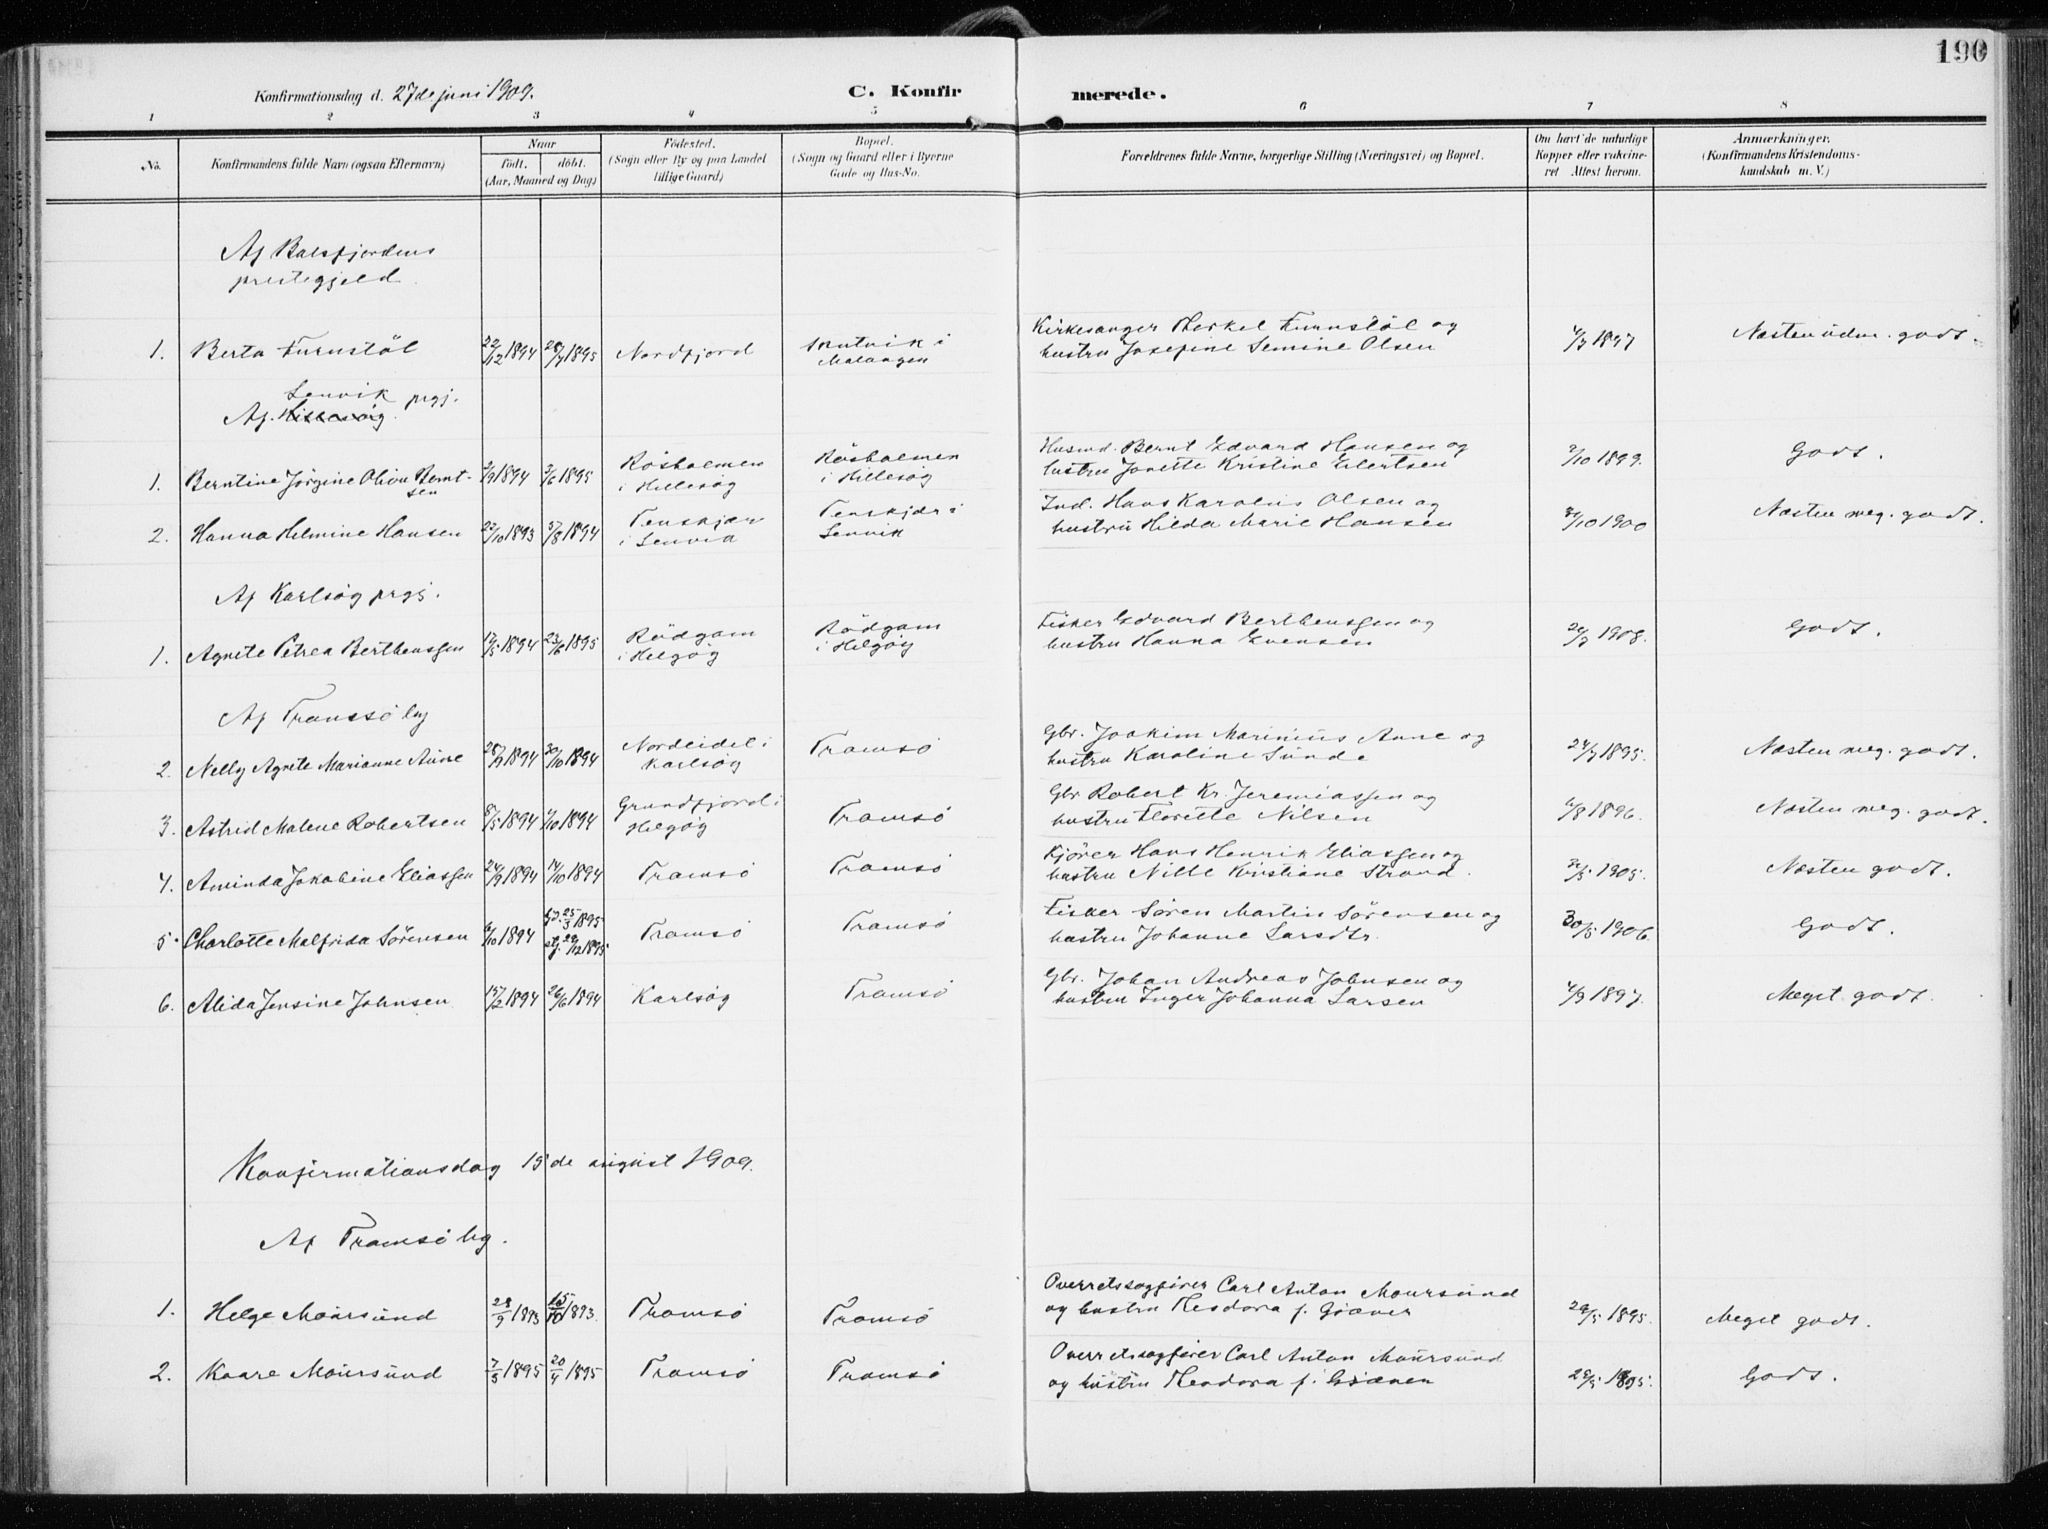 190
Konfirmationsdag d. 27de juni 1909.
C. Konfirmerede.
1 2 3 4 5 6 7 8
No.
Konfirmandens fulde Navn (ogsaa Efternavn)
Naar
födt. döbt.
(Aar, Maaned og Dag)
Födested.
(Sogn eller By og paa Landet
tillige Gaard)
Bopæl.
(Sogn og Gaard eller i Byerne
Gade og Hus-No.
Forældrenes fulde Navne, borgerlige Stilling (Næringsvei) og Bopæl.
Om havt de naturlige
Kopper eller vakcine-
ret Attest herom.
Anmærkninger.
(Konfirmandens Kristendoms-
kundskab m. V.)
Af Balsfjordens
prestegjeld.
1. Berta Furnstöl 22/12 1894 28/7 1895 Nordfjord Mutvik i Malangen Kirkesanger Terkel Furnstöl og
hustru Josefine Semine Olsen 1897 Næsten udm. godt.
Senvik prgj.
Af Hillesög.
1. Berntine Jörgine Oliva Berntsen 1894 1895 Rösholmen i Hillesög Rösholmen i Hillesög Husmd. Bernt Edvard Hansen og
hustru Jonette Kristine Eilertsen 1899. Godt.
2. Hanna Helmine Hansen 22/10 1893 1894 Tenskjær i Senvik Tenskjær i Senvik Ind. Hans Karolius Olsen og
hustru Hilda Marie Hansen 1900 Næsten meg. godt.
Af Karlsög prgj.
1. Agnete Petrea Berthensgen 17/5 1894 23/6 1895 Rödgam i Helgög Rödgam i Helgög Fisker Edvard Berthensgen og
hustru Hanna Evensen 1908. Godt.
Af Tromsö by
2. Nelly Agnete Marianne Aune 1894 30/10 1894 Nordeidet i Karlsög Tromsö Gbr. Joakim Marinius Aune og
hustru Karoline Sunde 24/7 1895. Næsten meg. godt.
3. Astrid Malene Robertsen 8/5 1894 1894 Grundfjord i Helgög Tromsö Gbr Robert Kr. Jeremiassen og
hustru Florette Nilsen 1896. Næsten meg. godt.
4. Aminda Jakobine Eliassen 24/9 1894 14/10 1894 Tromsö Tromsö Kjörer Hans Henrik Eliassen og
hustru Nille Kristiane Strand. 1905. Næsten godt.
5. Charlotte Malfrida Sörensen 6/10 1894 hj. 25/3 1895 stf. 29/12 1895 Tromsö Tromsö Fisker Sören Martin Sörensen og
hustru Johanne Larsdtr. 30/5 1906. Godt.
6. Alida Jensine Johnsen 15/2 1894 26/6 1894 Karlsög Tromsö Gbr. Johan Andreas Johnsen og
hustru Inger Johanna Larsen 1897. Meget godt.
Konfirmationsdag 15de august 1909.
Af Tromsö by.
1. Helge Moursund 28/9 1893 15/10 1893. Tromsö Tromsö Overretssagförer Carl Anton Moursund
og hustru Teodora f. Giæver 29/5 1895. Meget godt.
2. Kaare Moursund 7/3 1895 20/4 1895 Tromsö Tromsö Overretssagförer Carl Anton Moursund
og hustru Teodora f. Giæver 29/5 1895. Godt.